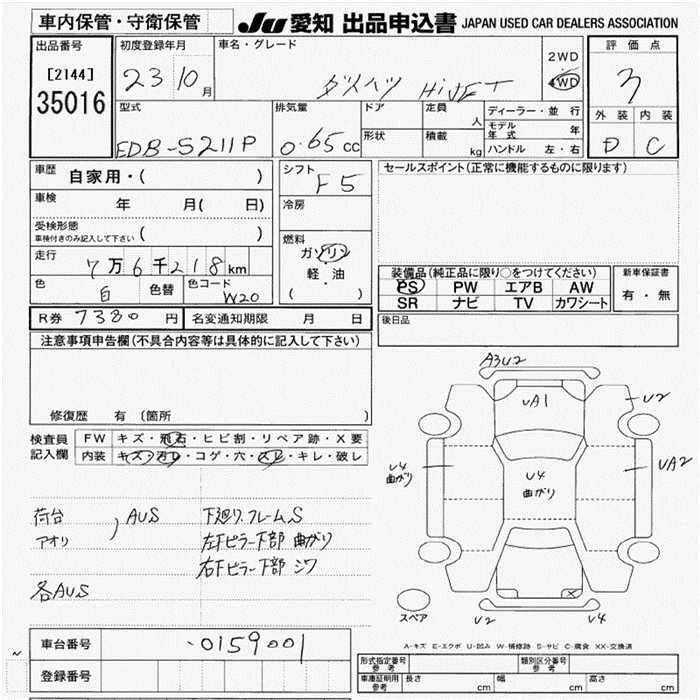 車内保管・守衛保管 JU 愛知 出品申込書 JAPAN USED CAR DEALERS ASSOCIATION
出品番号 初度登録年月 車名・グレード 2WD 評価点
[2144] 23 10月 ダイハツ HiJET 4WD 3
35016 型式 排気量 ドア 定員 人 ディーラー・並行 外装 内装
モデル年式 年
EDB-S211P 0.65cc 形状 積載 kg ハンドル 左・右 D C
車歴 自家用・( ) シフト F5 セールスポイント(正常に機能するものに限ります)
車検 年 月( 日) 冷房
受検形態
車検付きのみ記入して下さい ( )
燃料
走行 7万6千218km ガソリン
軽・油
( )
装備品(純正品に限り○をつけてください) 新車保証書
色 白 色替 色コード W20 PS PW エアB AW 有・無
SR ナビ TV カワシート
R券 7380円 名変通知期限 月 日 後日品
注意事項申告欄(不具合内容等は具体的に記入して下さい)
修復歴 有 (箇所 )
検査員 FW キズ・飛石・ヒビ割・リペア跡・X要
記入欄 内装 キズ・汚レ・コゲ・穴・スレ・キレ・破レ
荷台
アオリ ,AUS
各AUS
下廻り.フレームS
左下ピラー下部 曲がり
右下ピラー下部 シワ
A3U2
UA1
U2
U4
曲がり
U4
曲がり
UA2
X
スペア U2 U4
A-キズ E-エクボ U-凹み W-補修跡 S-サビ C-腐食 XX-交換済
車台番号 -0159001
登録番号
形式指定番号 参考 類別区分番号 参考
車庫証明用 参考 長さ cm 幅 cm 高さ cm